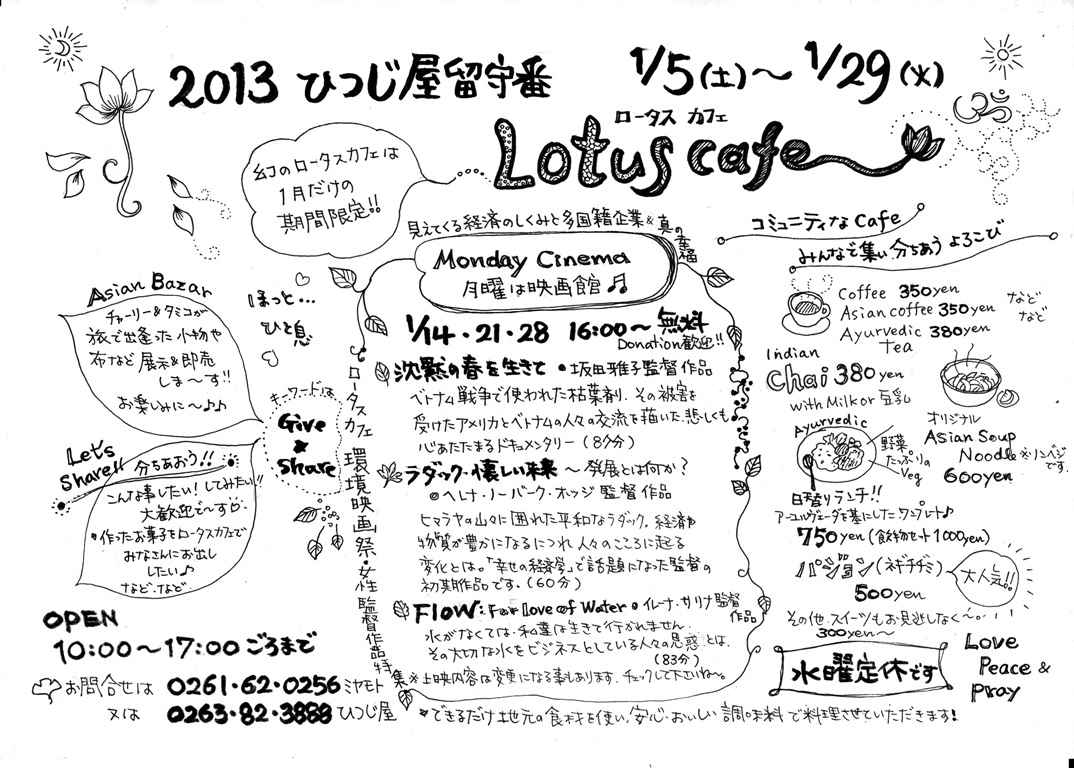 2013 ひつじ屋留守番 1/5(土)～1/29(火)
ロータス カフェ
Lotus cafe
幻のロータスカフェは
1月だけの
期間限定!!
見えてくる経済のしくみと多国籍企業&真の幸福
Monday Cinema
月曜は映画館♫
1/14・21・28 16:00～無料
Donation歓迎!!
沈黙の春を生きて ●坂田雅子監督作品
ベトナム戦争で使われた枯葉剤。その被害を
受けたアメリカとベトナムの人々の交流を描いた、悲しくも
心あたたまるドキュメンタリー(87分)
ラダック・懐しい未来 ～発展とは何か?
◎ヘレナ・ノーバーグ・ホッジ監督作品
ヒマラヤの山々に囲れた平和なラダック。経済や
物質が豊かになるにつれ人々のこころに起る
変化とは。「幸せの経済学」で話題になった監督の
初期作品です。(60分)
FLOW: For Love of Water ●イレーナ・サリナ監督
作品
水がなくては、私達は生きて行かれません。
その大切な水をビジネスとしている人々の思惑とは。
(83分)
※上映内容は変更になる事もあります。チェックして下さいね～。
ロータスカフェ 環境映画祭・女性監督作品特集
Asian Bazar
チャーリー&タミコが
旅で出逢った小物や
布など展示&即売
しま～す!!
お楽しみに～♪♪
ほっと…
ひと息
キーワードは
Give
&
Share
Let's
Share!!
分ちあおう!!
こんな事したい!してみたい!!
大歓迎で～す
*作ったお菓子をロータスカフェで
みなさんにお出し
したい♪
など・など
OPEN
10:00～17:00ごろまで
お問合せは 0261・62・0256 ミヤモト
又は 0263・82・3888 ひつじ屋
コミュニティなCafe
みんなで集い分ちあうよろこび
Coffee 350yen
Asian coffee 350yen
Ayurvedic 380yen
tea
などなど
Indian
Chai 380yen
with Milk or 豆乳
オリジナル
Asian Soup
Noodle ※ノンベジです。
600yen
Ayurvedic
野菜
たっぷりの
Veg
日替りランチ!!
アーユルヴェーダを基にしたワンプレート♪
750yen(飲物セット1000yen)
パジョン(ネギチヂミ)
500yen
大人気!!
その他、スイーツもお見逃しなく～。
300yen～
水曜定休です
Love
Peace &
Pray
*できるだけ地元の食材を使い、安心・おいしい調味料で料理させていただきます!